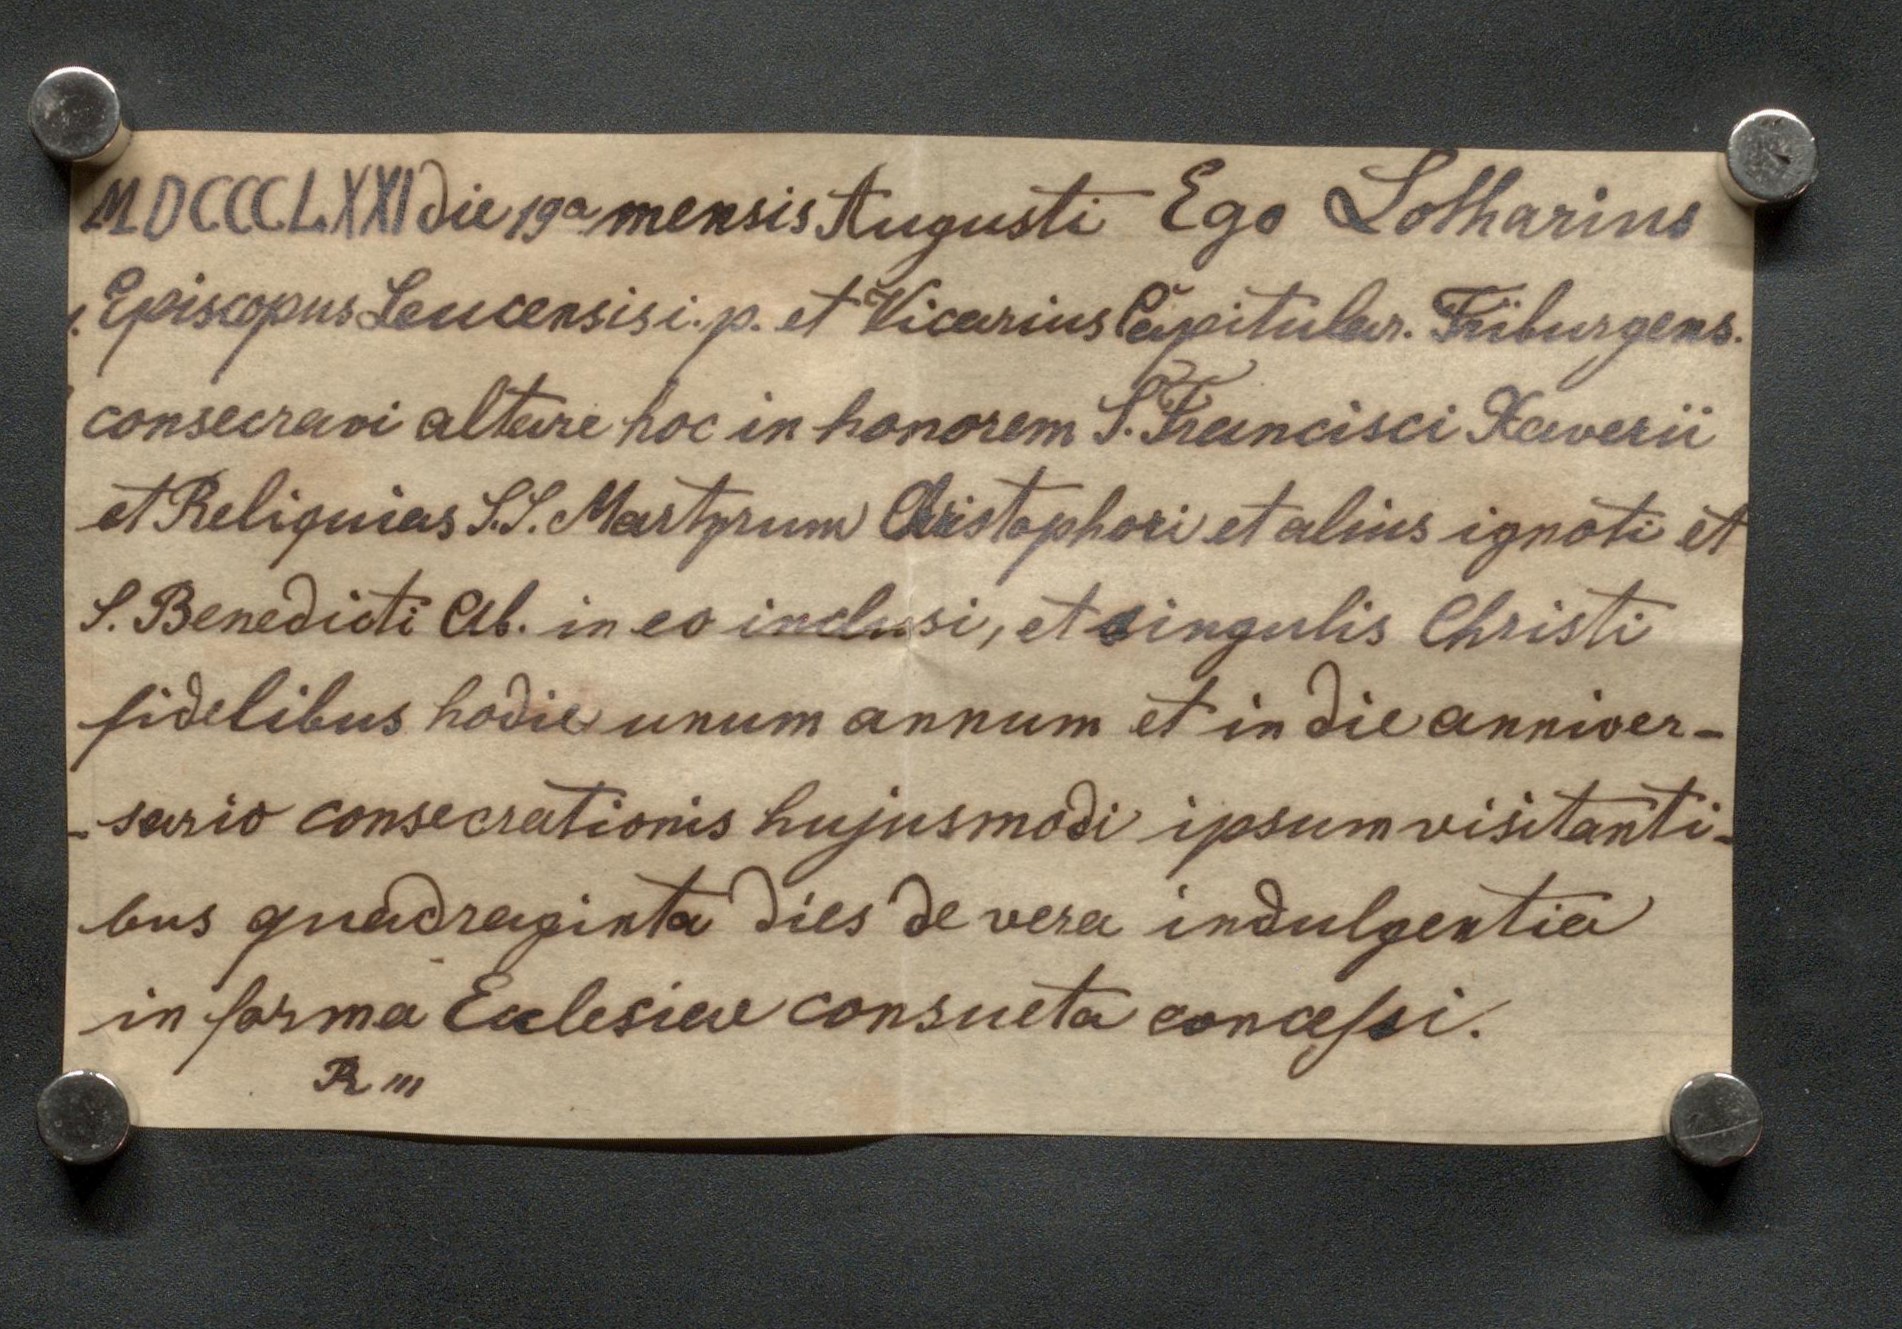 MDCCCLXXI die 19a mensis Augusti Ego Lotharius
Episcopus Leucensis i. p. et Vicarius Capitular. Friburgens.
consecravi altare hoc in honorem S. Francisci Xaverii
et Reliquias S.S. Martyrum Christophori et alius ignoti et
S. Benedicti Ab. in eo inclusi, et singulis Christi
fidelibus hodie unum annum et in die anniver-
-sario consecrationis hujusmodi ipsum visitanti-
bus quadraginta dies de vera indulgentia
in forma Ecclesiae consueta concessi.